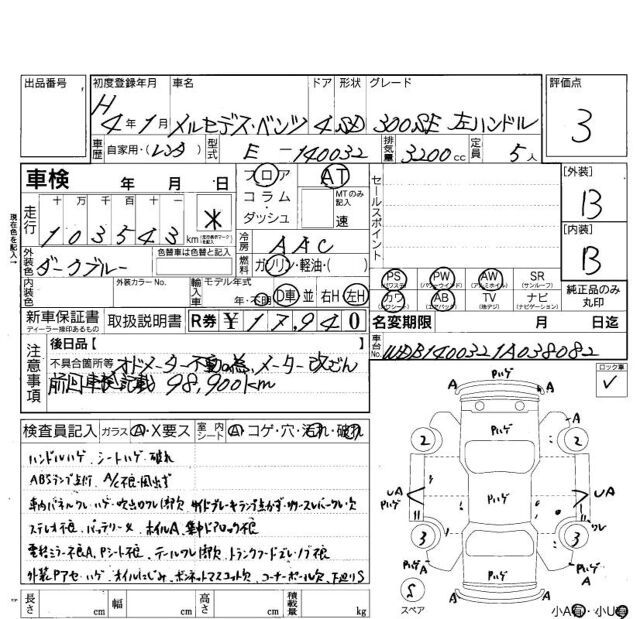 出品番号 初度登録年月 車名 ドア 形状 グレード 評価点
H 4年1月 メルセデス・ベンツ 4 SD 300SE 左ハンドル 3
車歴 自家用・(レンタ) 型式 E-140032 排気量 3200cc 定員 5人
車検 年 月 日 フロア AT セールスポイント [外装]
コラム MTのみ記入 B
ダッシュ 速
走行 十万 万 千 百 十 km
103543 *
現在色を記入→
冷房 AAC [内装]
外装色 ダークブルー 色替車は色替と記入 燃料 ガソリン・軽油・( ) B
内装色 外装カラーNo. 輸入車 モデル年式 年・不明 D車 並 右H 左H
PS PW AW SR
(パワステ) (パワーウィンド) (アルミホイル) (サンルーフ)
カワ AB TV ナビ 純正品のみ丸印
(エアバック) (地デジ) (ナビゲーション)
新車保証書 取扱説明書 R券 ¥17,940 名変期限 月 日迄
ディーラー捺印あるもの
注意事項 後日品[ ] 車台No. WDB1400321A038082
不具合箇所等 オドメーター不動の為、メーター改ざん
前回車検記載 98,900km
ロック車 ✓
検査員記入 ガラス A・X要ス 室内シート A・コゲ・穴・汚れ・破れ
ハンドルハゲ、シートハゲ、破れ
ABSランプ点灯、A/C不良・風出ず
車内パネルワレ、ハゲ、吹出口ワレ欠 サイドブレーキランプ点かず、カースレバーワレ・欠
ステレオ不良、バッテリー×、ホイルA、集中ドアロック不良
電格ミラー不良A、Pシート不良、テールワレ欠、トランクフードズレ・ノブ不良
外装Pアセ・ハゲ、オイルにじみ、ボンネットマスコット欠、コーナーポール欠、下廻りS
長さ cm 幅 cm 高さ cm 積載量 kg
A Pハゲ A
2 Pハゲ 2
Pハゲ Pハゲ
UA Pハゲ UA
3 Pハゲ 3 ワレ
PハゲA PハゲA
S A A
スペア 小A有・小U有